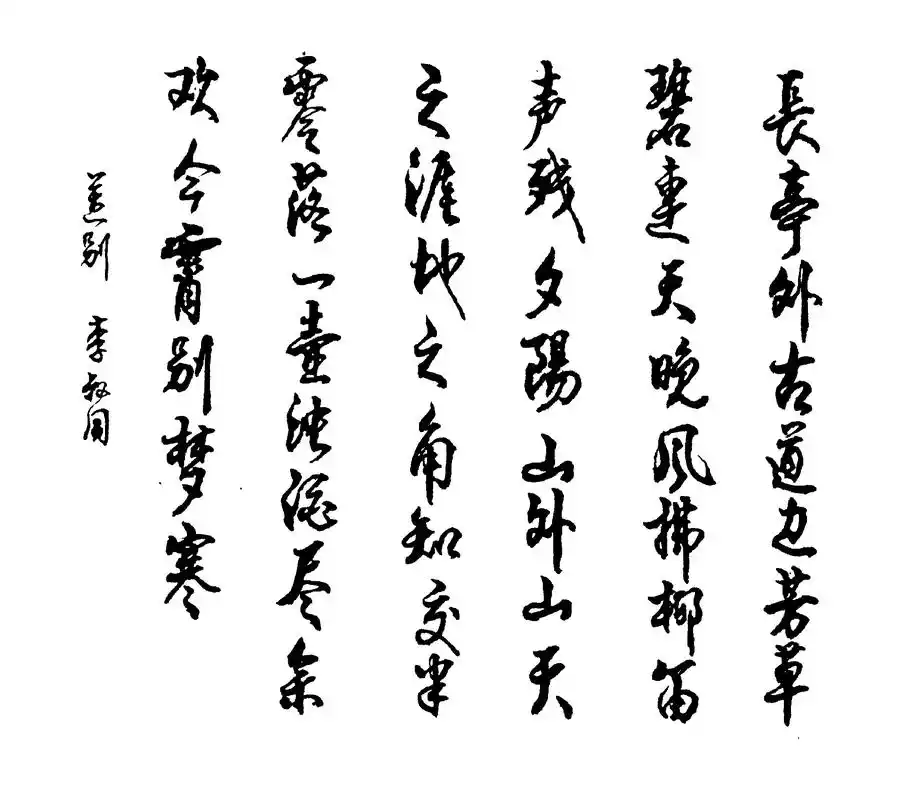 長亭外古道边芳草
碧連天晚风拂柳笛
声残夕陽山外山天
之涯地之角知交半
零落一壶浊酒尽余
欢今霄别梦寒
送别 李叔同